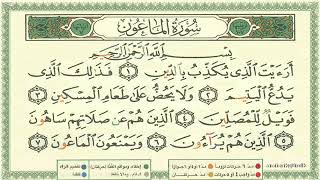 سُورَةُ الْمَاعُونِ
بِسْمِ اللَّهِ الرَّحْمَٰنِ الرَّحِيمِ
أَرَءَيْتَ الَّذِى يُكَذِّبُ بِالدِّينِ ١ فَذَٰلِكَ الَّذِى
يَدُعُّ الْيَتِيمَ ٢ وَلَا يَحُضُّ عَلَىٰ طَعَامِ الْمِسْكِينِ ٣
فَوَيْلٌ لِّلْمُصَلِّينَ ٤ الَّذِينَ هُمْ عَن صَلَاتِهِمْ سَاهُونَ
٥ الَّذِينَ هُمْ يُرَآءُونَ ٦ وَيَمْنَعُونَ الْمَاعُونَ ٧